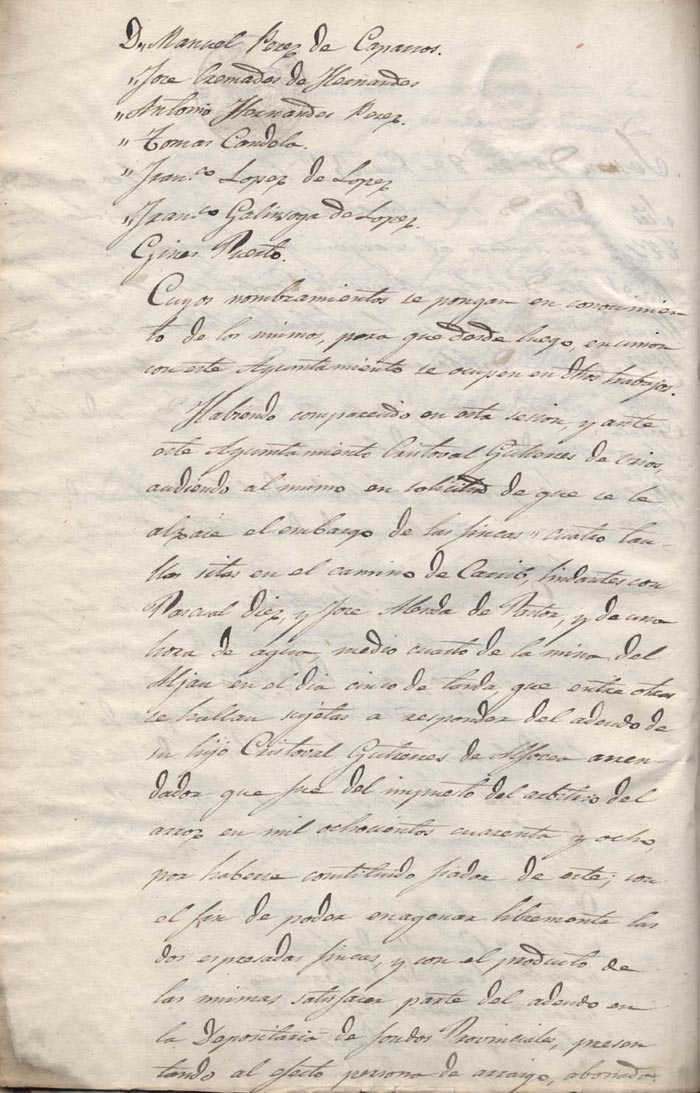 D,, Manuel Perez de Caparros.
,, Jose Cremades de Hernandes
,, Antonio Hernandes Perez.
,, Tomas Candela.
,, Fran.co Lopez de Lopez
,, Fran.co Galinsoga de Lopez.
Gines Puerto.
Cuyos nombramientos se pongan en conocimien
to de los mismos, para que desde luego, en union
con este Ayuntamiento se ocupen en dhos trabajos.
Habiendo comparecido en esta sesion, y ante
este Ayuntamiento Cristoval Guliones de
audiendo al mismo en solicitud de que se le
alzace el embargo de las fincas cuatro tau-
llas sitas en el camino de lindantes con
Pascual diez, y Jose de Pastor, y de una
hora de agua, medio cuarto de la mina del
en el dia cinco de tanda, que entre otras
se hallan sujetas a responder del adeudo de
su hijo Cristoval Guliones de arren-
dador que fue del impuesto del arbitrio del
arroz en mil ochocientos cuarenta y ocho,
por haberse constituido fiador de este; con
el fin de poder enagenar libremente las
dos espresadas fincas, y con el producto de
las mismas satisfacer parte del adeudo en
la Depositaria de fondos Provinciales, presen
tando al efecto persona de arraigo, abonada